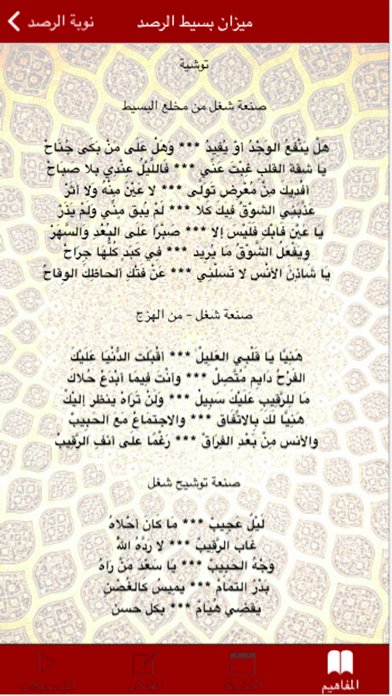 نوبة الرصد
ميزان بسيط الرصد
توشية
صنعة شغل من مخلع البسيط
هَلْ يَنْفَعُ الوَجْدُ أوْ يُفِيدُ *** وَهَلْ عَلَى مَنْ بَكَى جُنَاحْ
يا شقة القلبِ غِبْتَ عَنِّي *** فَاللَّيْلُ عِنْدِي بِلا صَبَاحْ
أفْدِيكَ مِنْ مُعْرِضٍ تَولَّى *** لا عَيْنَ مِنْهُ وَلاَ أثَرْ
عَذَّبَنِي الشَّوْقُ فِيكَ كَلاَّ *** لَمْ يُبْقِ مِنِّي وَلَمْ يَذَرْ
يا عَيْنِ فَابْكِ فَلَيْسَ إلا *** صَبْرًا عَلَى البُعْدِ وَالسَّهَرْ
وَيَفْعَلُ الشَّوْقُ مَا يُرِيدْ *** فِي كَبِدٍ كُلُّهَا جِرَاحْ
يا شَاذِنَ الأنْسِ لا تَسَلْنِي *** عَنْ فَتْكِ ألحَاظِكَ الوِقَاحْ
صنعة شغل - من الهزج
هَنِيًّا يَا قَلْبِي العَلِيلْ *** أقْبَلَتِ الدُّنْيَا عَلَيْكَ
الفَرَحْ دَايِم مُتَّصِلْ *** وَانْتَ فِيمَا أبْدَعْ حُلاَكْ
مَا لِلرَّقِيبْ عَلَيْكَ سَبِيلْ *** وَلَنْ تَرَاهُ يَنْظُر إلَيْكْ
هَنِيًّا لَكْ بِالاتِّفَاقْ *** وَالاجتِمَاعْ مَعَ الحَبِيبْ
والأنس مِنْ بَعْدِ الفِرَاقْ *** رَغْمًا عَلَى أنْفِ الرَّقِيبْ
صنعة توشيح شغل
لَيْلٌ عَجِيبْ *** مَا كَانَ أحْلاَهْ
غَابَ الرَّقِيبْ *** لا رَدَّهُ اللَّهْ
وَجْهُ الحَبِيبْ *** يا سَعْدَ مَنْ رَاهْ
بَدْرُ التَّمَامْ *** يَمِيسُ كَالغُصْنْ
يَقْضِي هُيَامْ *** بِكل حسن
المفاهيم